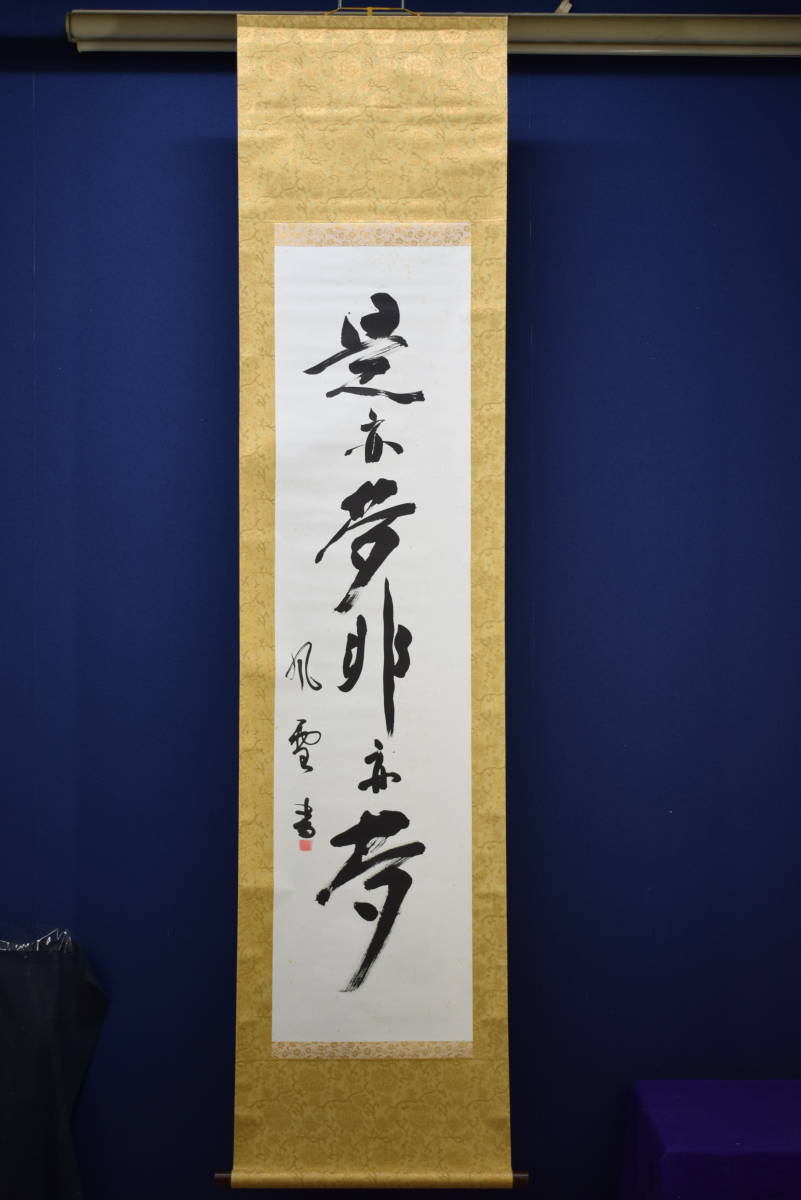 是亦夢非亦夢
風雲書